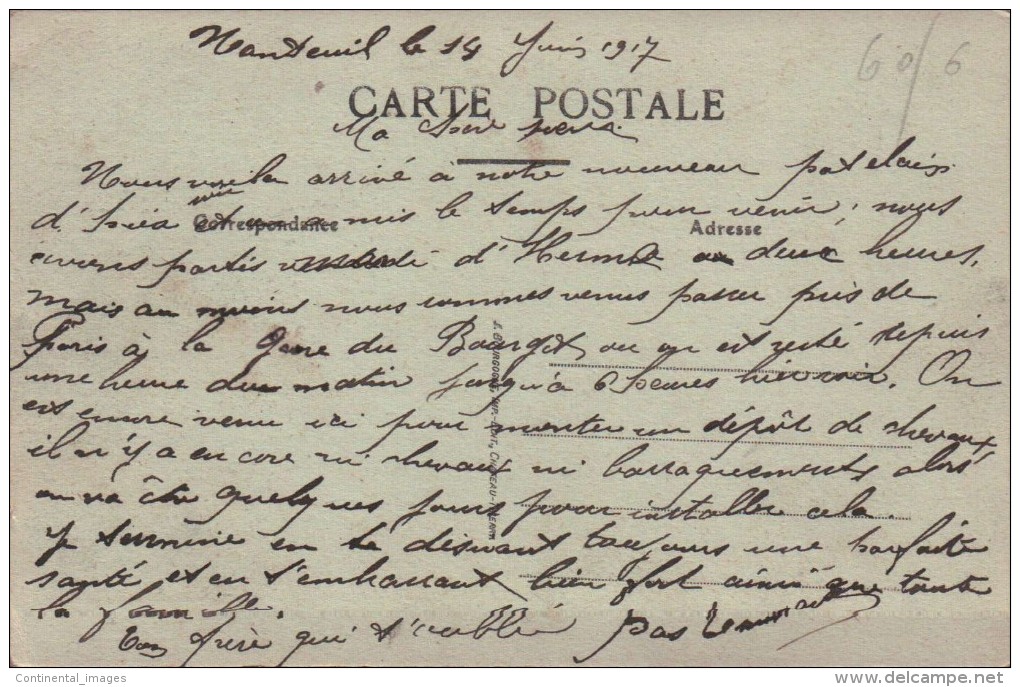 Nanteuil le 14 Juin 1917
60/6
CARTE POSTALE
Ma chère soeur
Nous voilà arrivé à notre nouveau patelain
d'hier soir a mis le temps pour venir; nous
Correspondance
Adresse
avons partis d'Hermé a deux heures.
mais au moins nous sommes venus passer près de
Paris à la Gare du Bourget, ou on est resté depuis
une heure du matin jusqu'à 6 heures hier soir. On
est encore venu ici pour monter un dépôt de chevaux
il n'y a encore ni chevaux ni barraquements alors
on va être quelques jours pour installer cela.
Je termine en te désirant toujours une parfaite
santé et en t'embrassant bien fort ainsi que toute
la famille.
Ton frère qui t'oublie pas
J. BOURGOGNE, IMP.-EDIT., CHATEAU-THIERRY
Continental_images
www.delcampe.net